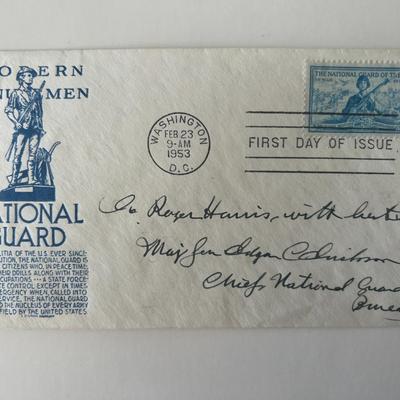 ODERN
NUTEMEN
NATIONAL
GUARD
LITIA OF THE U.S. EVER SINCE
UTION, THE NATIONAL GUARD IS
CITIZENS WHO, IN PEACE TIME,
HEIR DRILLS ALONG WITH THEIR
CUPATIONS - - A STATE FORCE
TE CONTROL, EXCEPT IN TIMES
ERGENCY WHEN, CALLED INTO
SERVICE, THE NATIONAL GUARD
D THE NUCLEUS OF EVERY ARMY
FIELD BY THE UNITED STATES
WASHINGTON
FEB 23
9-AM
1953
D.C.
THE NATIONAL GUARD OF THE
FIRST DAY OF ISSUE
To Roger Harris, with best
Maj Gen Edgar C Erickson
Chief National Guard
Bureau